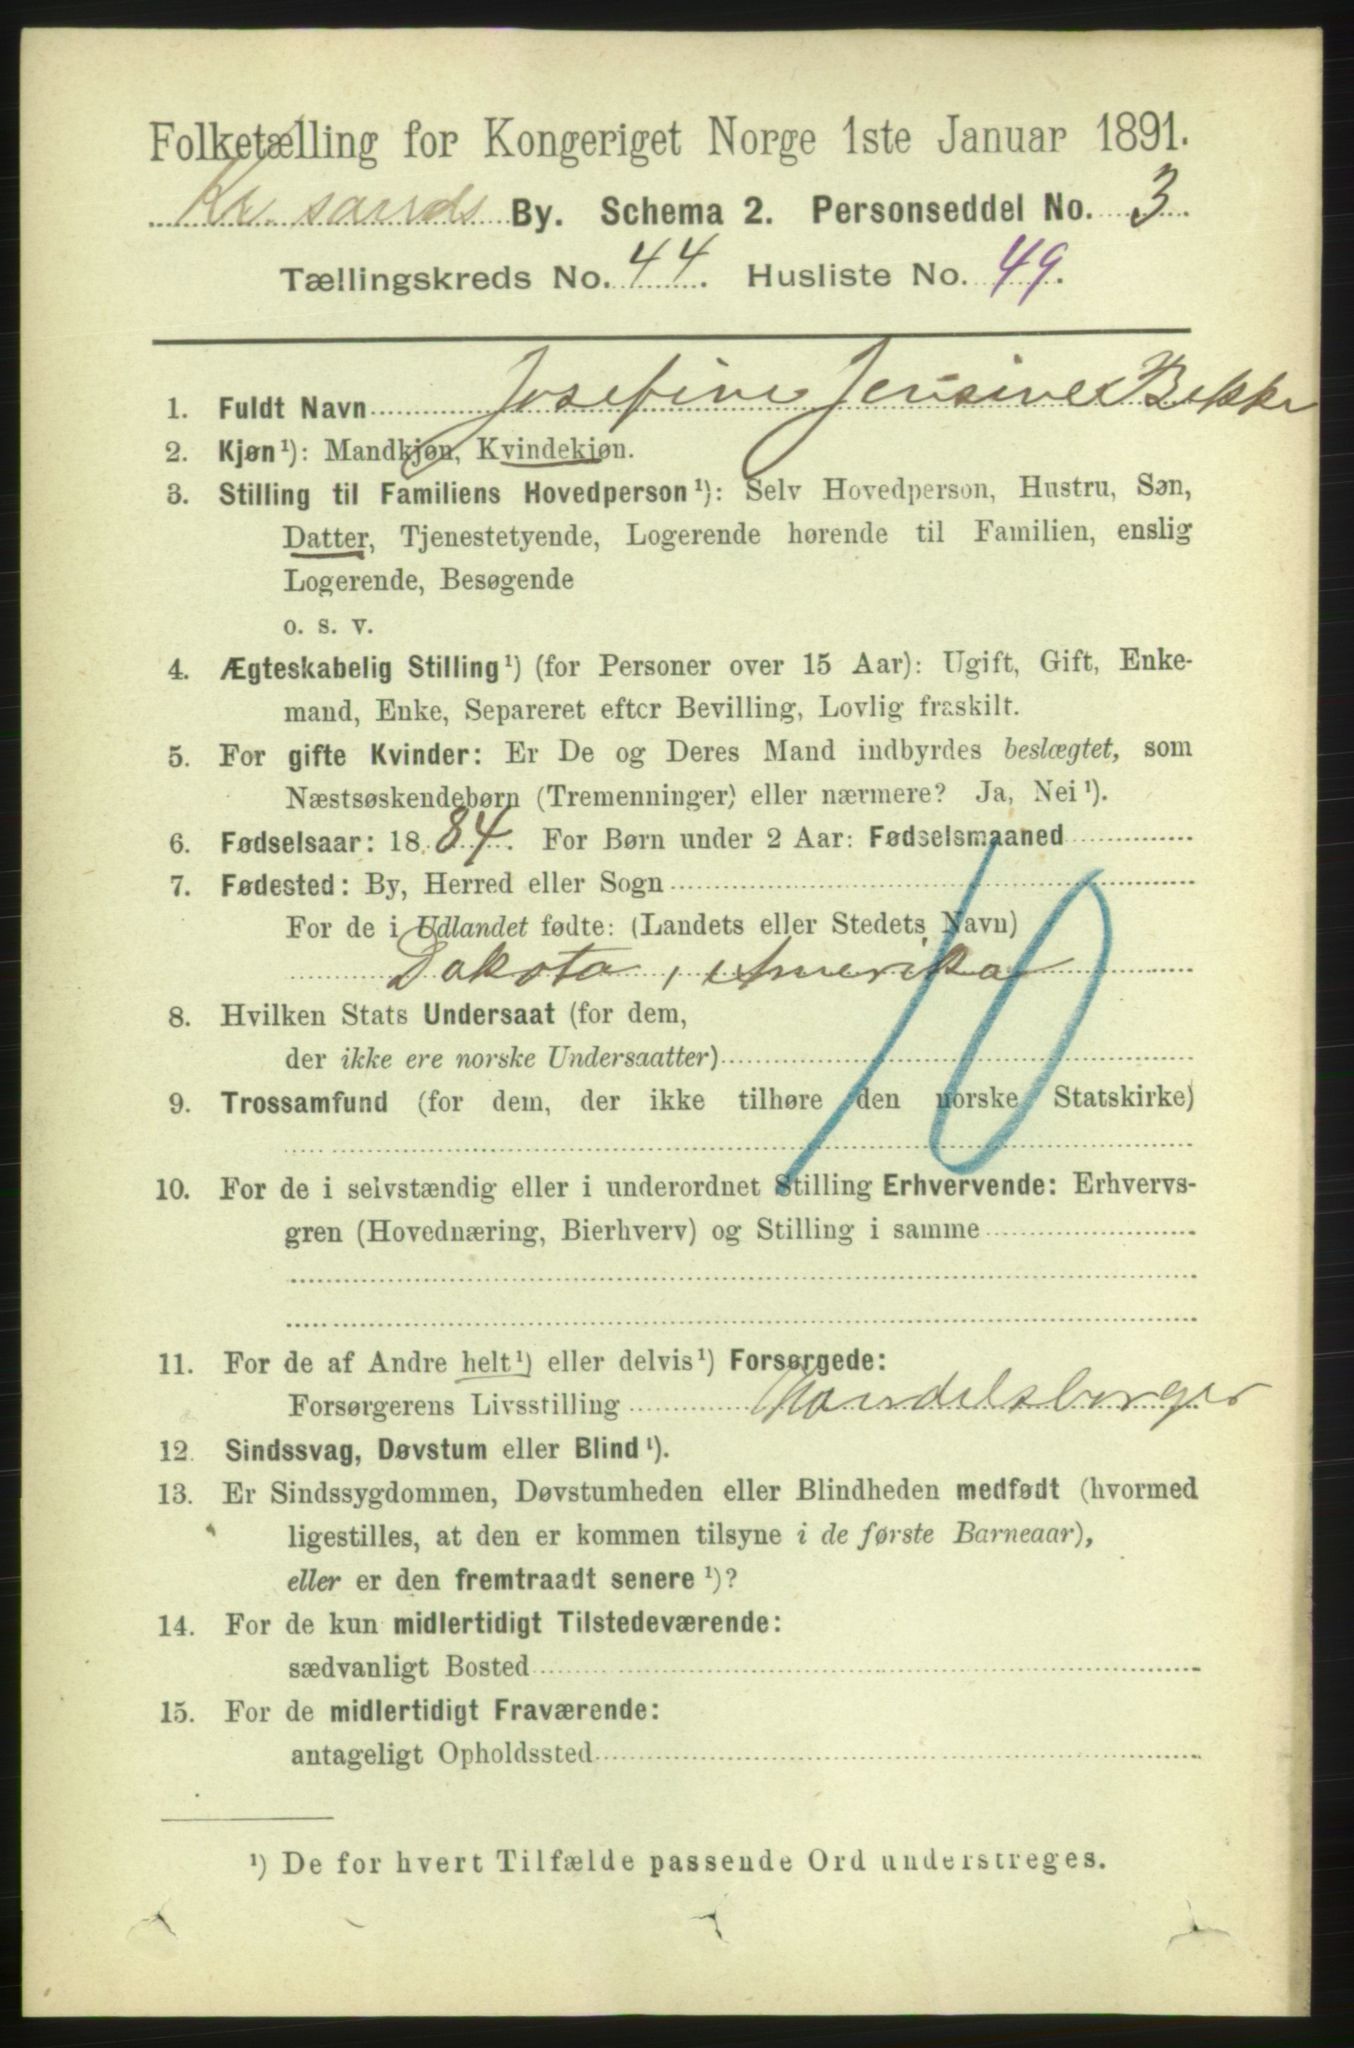 Folketælling for Kongeriget Norge 1ste Januar 1891.
Kr. sands By. Schema 2. Personseddel No. 3
Tællingskreds No. 44. Husliste No. 49.
1. Fuldt Navn Josefine Jensine Bekke
2. Kjøn¹): Mandkjøn, Kvindekjøn.
3. Stilling til Familiens Hovedperson¹): Selv Hovedperson, Hustru, Søn,
Datter, Tjenestetyende, Logerende hørende til Familien, enslig
Logerende, Besøgende
o. s. v.
4. Ægteskabelig Stilling¹) (for Personer over 15 Aar): Ugift, Gift, Enke-
mand, Enke, Separeret efter Bevilling, Lovlig fraskilt.
5. For gifte Kvinder: Er De og Deres Mand indbyrdes beslægtet, som
Næstsøskendebørn (Tremenninger) eller nærmere? Ja, Nei¹).
6. Fødselsaar: 1884. For Børn under 2 Aar: Fødselsmaaned
7. Fødested: By, Herred eller Sogn
For de i Udlandet fødte: (Landets eller Stedets Navn)
Dakota, Amerika
10
8. Hvilken Stats Undersaat (for dem,
der ikke ere norske Undersaatter)
9. Trossamfund (for dem, der ikke tilhøre den norske Statskirke)
10. For de i selvstændig eller i underordnet Stilling Erhvervende: Erhvervs-
gren (Hovednæring, Bierhverv) og Stilling i samme
11. For de af Andre helt¹) eller delvis¹) Forsørgede:
Forsørgerens Livsstilling Handelsborger
12. Sindssvag, Døvstum eller Blind¹).
13. Er Sindssygdommen, Døvstumheden eller Blindheden medfødt (hvormed
ligestilles, at den er kommen tilsyne i de første Barneaar),
eller er den fremtraadt senere¹)?
14. For de kun midlertidigt Tilstedeværende:
sædvanligt Bosted
15. For de midlertidigt Fraværende:
antageligt Opholdssted
¹) De for hvert Tilfælde passende Ord understreges.